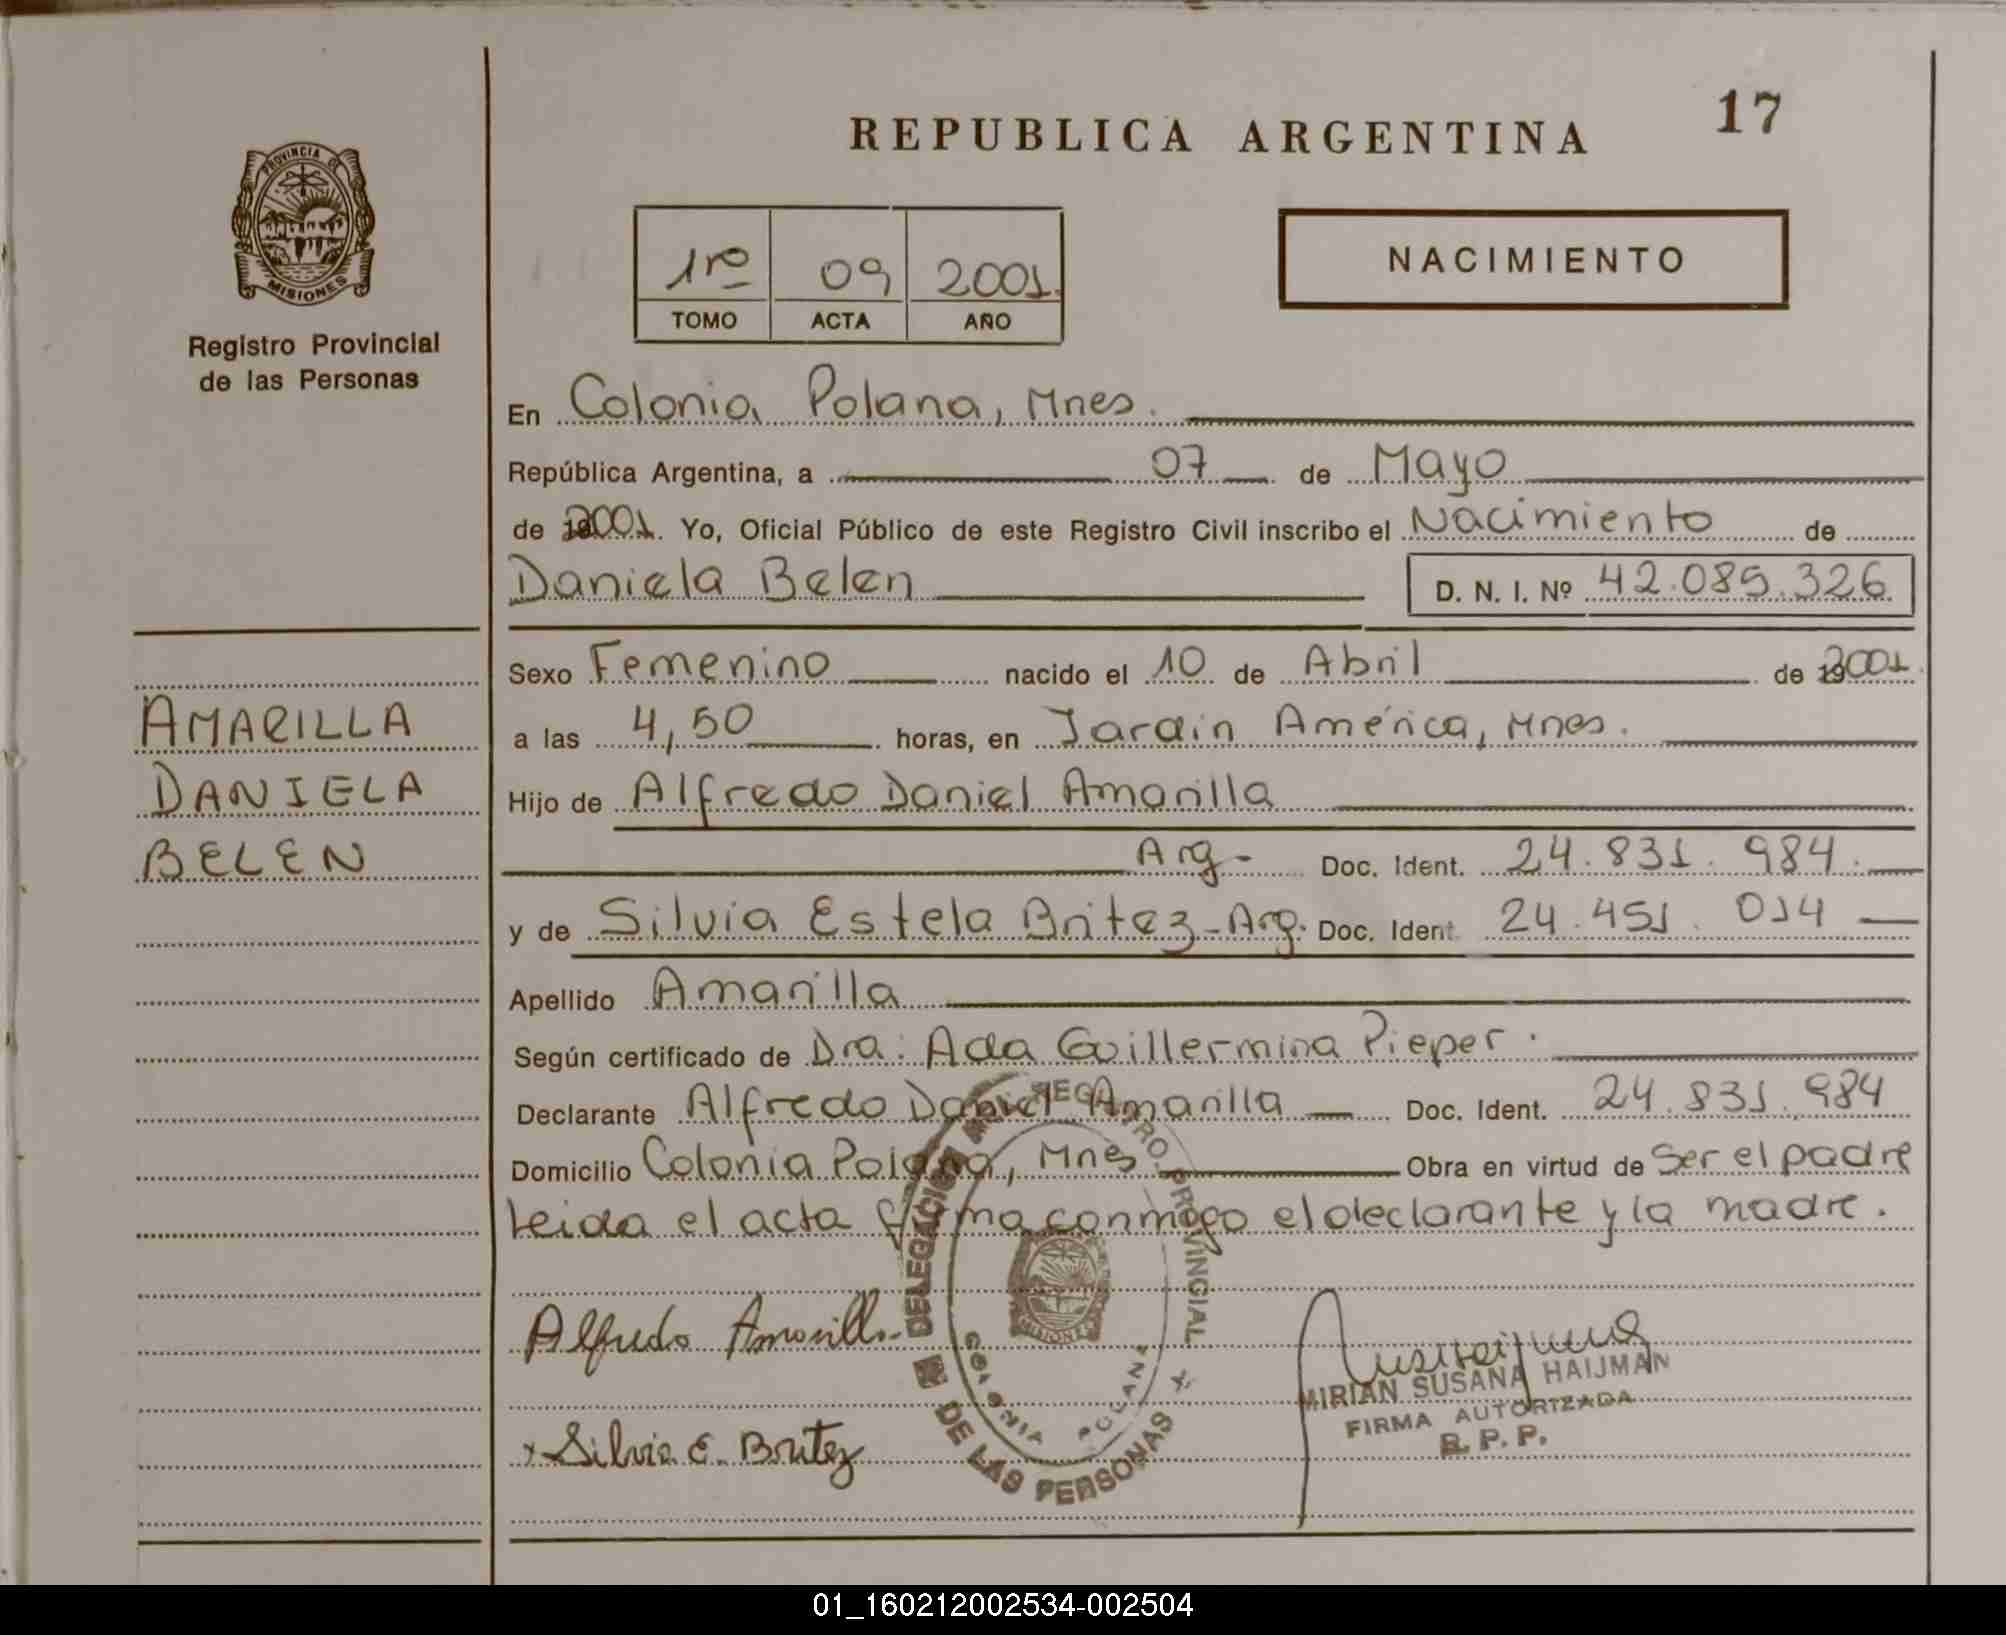 REPUBLICA ARGENTINA
17
PROVINCIA DE
MISIONES
Registro Provincial
de las Personas
1ro 09 2001.
TOMO ACTA AÑO
NACIMIENTO
En Colonia Polana, Mnes.
República Argentina, a 07 de Mayo
de 2001. Yo, Oficial Público de este Registro Civil inscribo el Nacimiento de
Daniela Belen D. N. I. Nº 42.085.326
Sexo Femenino nacido el 10 de Abril de 2001.
AMARILLA
DANIELA
BELEN
a las 4,50 horas, en Jardin América, Mnes.
Hijo de Alfredo Daniel Amarilla
Arg- Doc. Ident. 24.831.984.
y de Silvia Estela Britez-Arg. Doc. Ident. 24.451.014
Apellido Amarilla
Según certificado de Dra: Ada Guillermina Pieper.
Declarante Alfredo Daniel Amarilla Doc. Ident. 24.831.984
Domicilio Colonia Polana, Mnes Obra en virtud de Ser el padre
Leida el acta firma conmigo el declarante y la madre.
REGISTRO PROVINCIAL
DE LAS PERSONAS
DELEGACION
COLONIA POLANA
MISIONES
Alfredo Amarilla
Silvia E. Britez
MIRIAN SUSANA HAIJMAN
FIRMA AUTORIZADA
R. P. P.
01_160212002534-002504